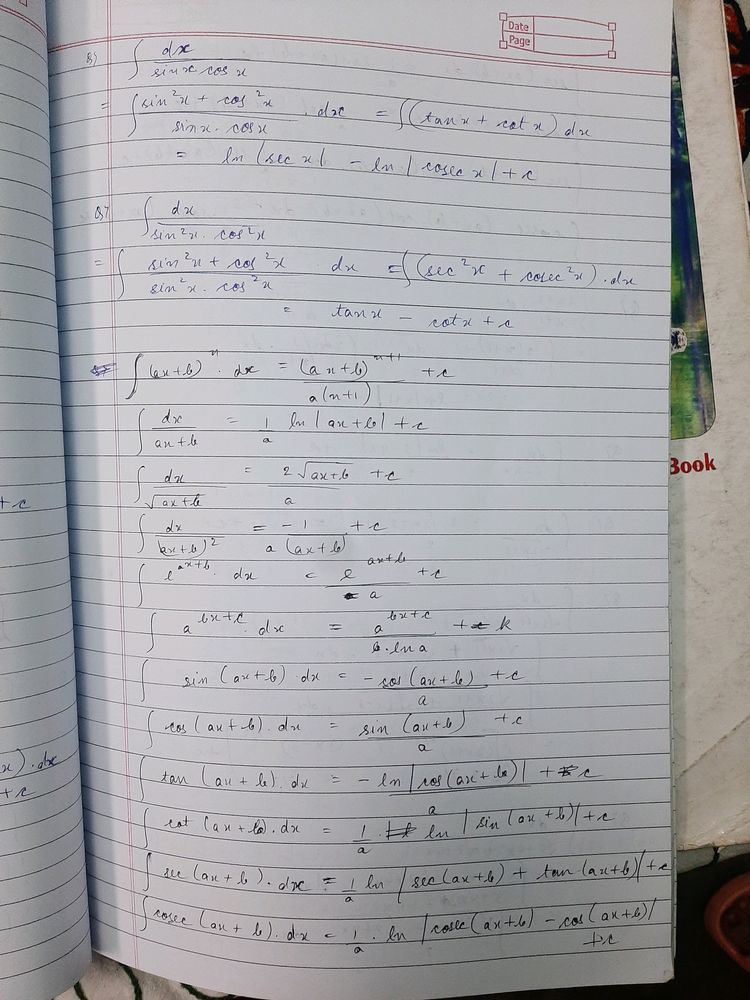 Date
Page
Q) ∫ dx / sinx cos x
= ∫ (sin²x + cos²x) / (sinx. cosx) . dx = ∫(tanx + cotx) dx
= ln |sec x| - ln |cosec x| + c
Q7 ∫ dx / sin²x. cos²x
= ∫ (sin²x + cos²x) / (sin²x. cos²x) dx = ∫(sec²x + cosec²x).dx
= tanx - cotx + c
∫(ax+b)ⁿ. dx = (ax+b)ⁿ⁺¹ / a(n+1) + c
∫ dx / ax+b = 1/a ln |ax+b| + c
∫ dx / √ax+b = 2√ax+b / a + c
∫ dx / (ax+b)² = -1 / a(ax+b) + c
∫ e^(ax+b). dx = e^(ax+b) / a + c
∫ a^(bx+c). dx = a^(bx+c) / b.ln a + k
∫ sin (ax+b) dx = -cos (ax+b) / a + c
∫ cos (ax+b). dx = sin (ax+b) / a + c
∫ tan (ax+b). dx = - ln|cos(ax+b)| / a + c
∫ cot (ax+b). dx = 1/a . ln |sin (ax+b)| + c
∫ sec (ax+b). dx = 1/a ln |sec(ax+b) + tan(ax+b)| + c
∫ cosec (ax+b). dx = 1/a . ln |cosec(ax+b) - cos(ax+b)|
+c
Book
+ c
x) . dx
+ c